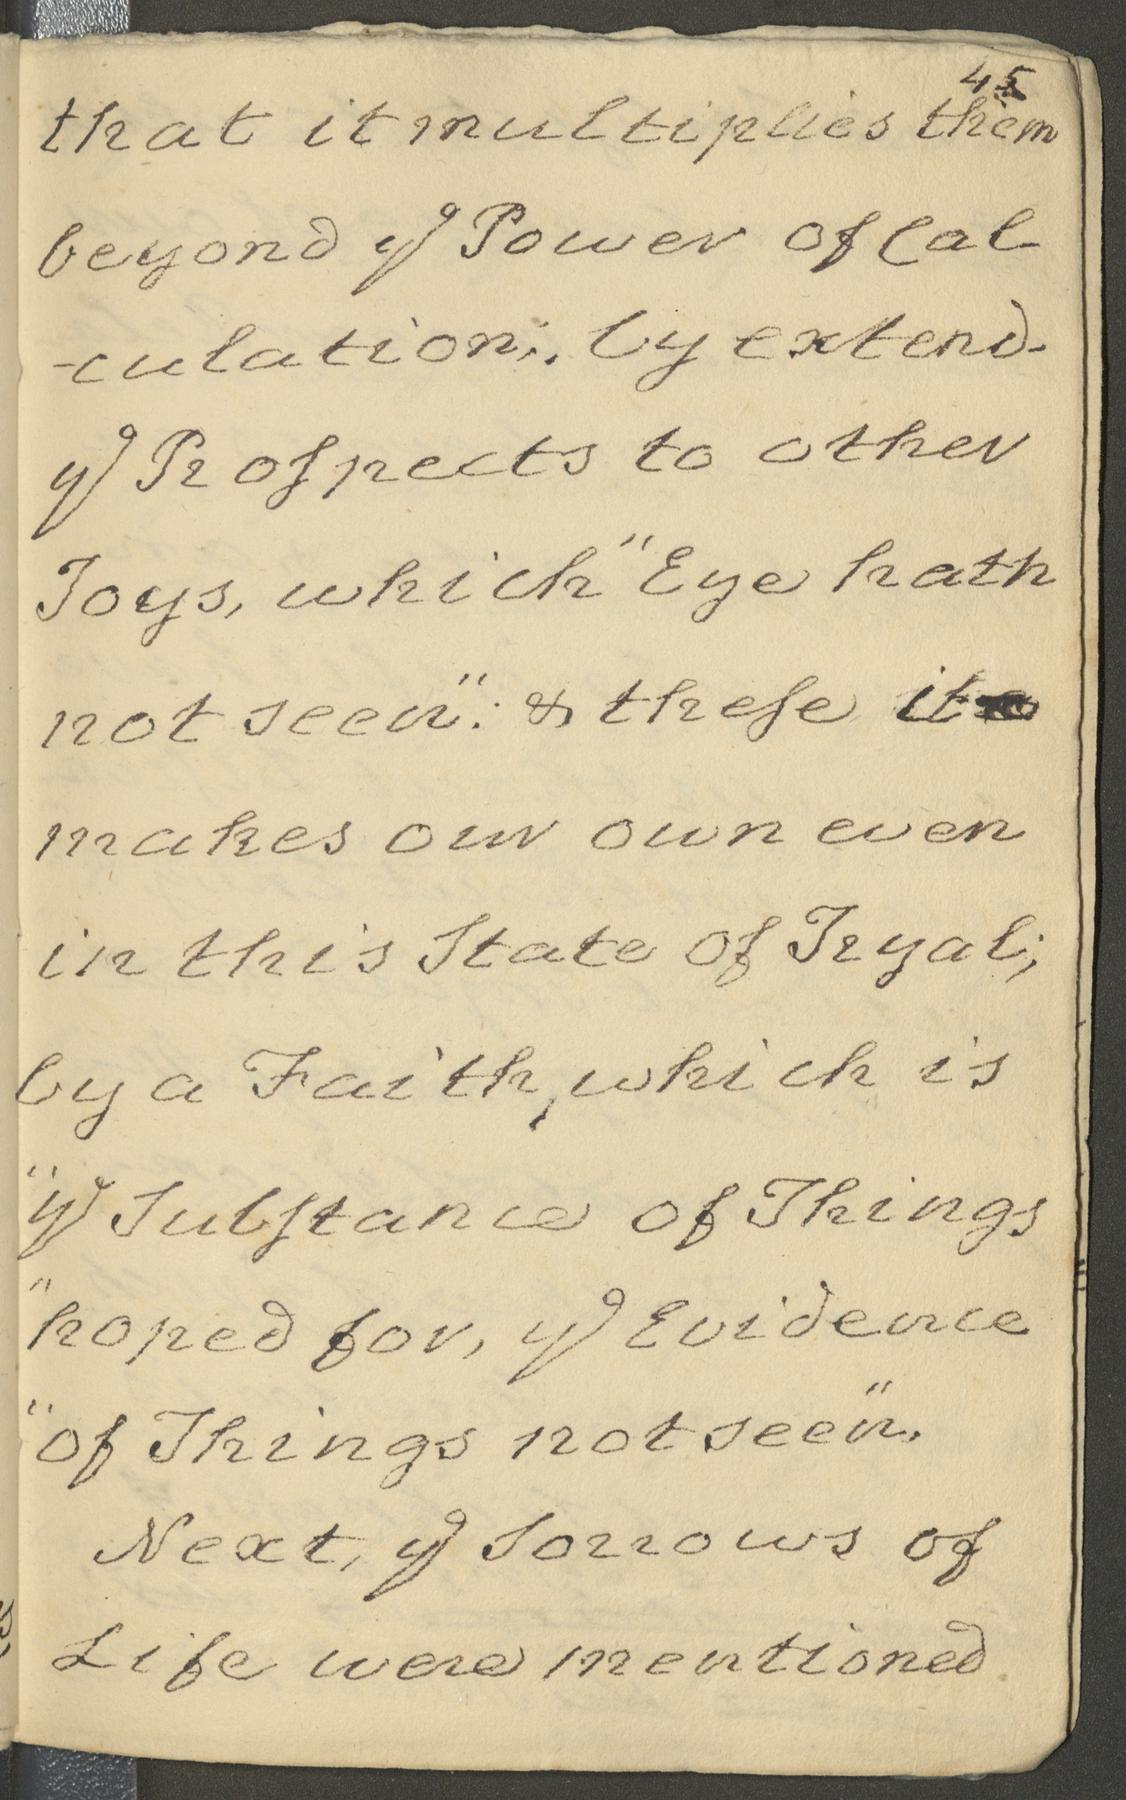 45
that it multiplies them
beyond ye Power of Cal
-culation;. by extend-
ye Proſpects to other
Joys, which "Eye hath
not seen": & theſe it
makes our own even
in this State of Tryal;
by a Faith, which is
"ye Subſtance of Things
"hoped for, ye Evidence
"of Things not seen".
Next, ye Sorrows of
Life were mentioned